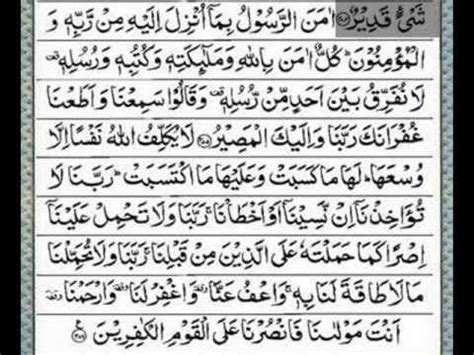 شَىْءٍ قَدِيْرٌ ۝ اٰمَنَ الرَّسُوْلُ بِمَاۤ اُنْزِلَ اِلَيْهِ مِنْ رَّبِّهٖ وَ
الْمُؤْمِنُوْنَ ؕ كُلٌّ اٰمَنَ بِاللّٰهِ وَمَلٰٓئِكَتِهٖ وَكُتُبِهٖ وَرُسُلِهٖ ۟
لَا نُفَرِّقُ بَيْنَ اَحَدٍ مِّنْ رُّسُلِهٖ ۟ وَقَالُوْا سَمِعْنَا وَاَطَعْنَا
غُفْرَانَكَ رَبَّنَا وَاِلَيْكَ الْمَصِيْرُ ۝ لَا يُكَلِّفُ اللّٰهُ نَفْسًا اِلَّا
وُسْعَهَا ؕ لَهَا مَا كَسَبَتْ وَعَلَيْهَا مَا اكْتَسَبَتْ ؕ رَبَّنَا لَا
تُؤَاخِذْنَاۤ اِنْ نَّسِيْنَاۤ اَوْ اَخْطَاْنَا ۚ رَبَّنَا وَلَا تَحْمِلْ عَلَيْنَاۤ
اِصْرًا كَمَا حَمَلْتَهٗ عَلَى الَّذِيْنَ مِنْ قَبْلِنَا ۚ رَبَّنَا وَلَا تُحَمِّلْنَا
مَا لَا طَاقَةَ لَنَا بِهٖ ۚ وَاعْفُ عَنَّا ۥ وَاغْفِرْ لَنَا ۥ وَارْحَمْنَا ۥ
اَنْتَ مَوْلٰىنَا فَانْصُرْنَا عَلَى الْقَوْمِ الْكٰفِرِيْنَ ۝